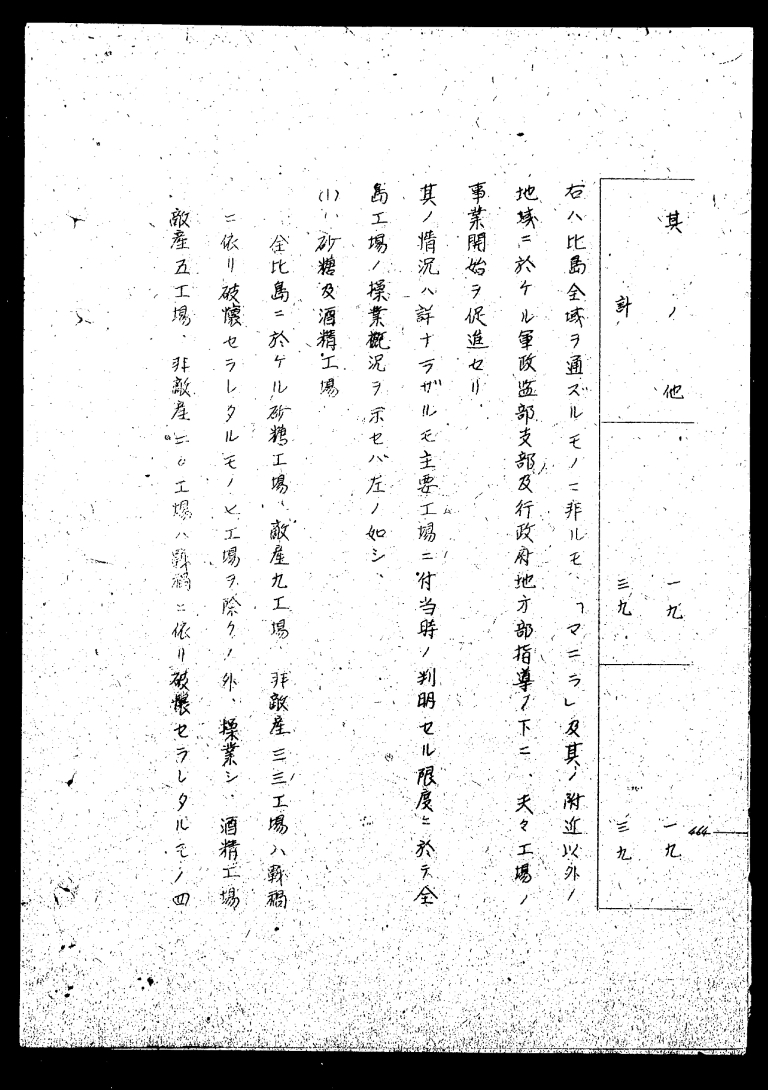 其ノ他 一九 一九
計 三九 三九
右ハ比島全域ヲ通ズルモノニ非ルモ、「マニラ」及其ノ附近以外ノ
地域ニ於ケル軍政監部支部及行政府地方部指導ノ下ニ、夫々工場ノ
事業開始ヲ促進セリ.
其ノ情況ハ詳ナラザルモ主要工場ニ付当時ノ判明セル限度ニ於テ全
島工場ノ操業概況ヲ示セバ左ノ如シ、
(1)ハ砂糖及酒精工場
全比島ニ於ケル砂糖工場、敵産九工場、非敵産三三工場ハ戦禍
ニ依リ破壊セラレタルモノ七工場ヲ除クノ外、操業シ、酒精工場
敵産五工場、非敵産二〇工場ハ戦禍ニ依リ破壊セラレタルモノ四
464